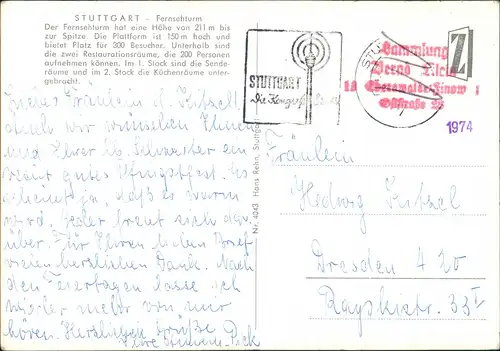 STUTTGART – Fernsehturm
Der Fernsehturm hat eine Höhe von 211 m bis
zur Spitze. Die Plattform ist 150 m hoch und
bietet Platz für 300 Besucher. Unterhalb sind
die zwei Restaurationsräume, die 200 Personen
aufnehmen können. Im 1. Stock sind die Sende-
räume und im 2. Stock die Küchenräume unter-
gebracht.
Liebes Fräulein
auch wir wünschen Ihnen
und Ihrer lb. Schwester ein
recht gutes Pfingstfest. Es
scheint ja, daß es warm
wird, jeder freut sich dar-
über. Für Ihren lieben Brief
vielen herzlichen Dank. Nach
den Feiertagen lasse ich
wieder mehr von mir
hören. Herzliche Grüße
Ihre
Nr. 4243 Hans Rehn, Stuttgart
STUTTGART
Die Kongreß-Stadt
STU
Sammlung
Bernd Klein
18 Eberswalde-Finow 1
Oststraße 25
Z
1974
Fräulein
Hedwig
Dresden A 20